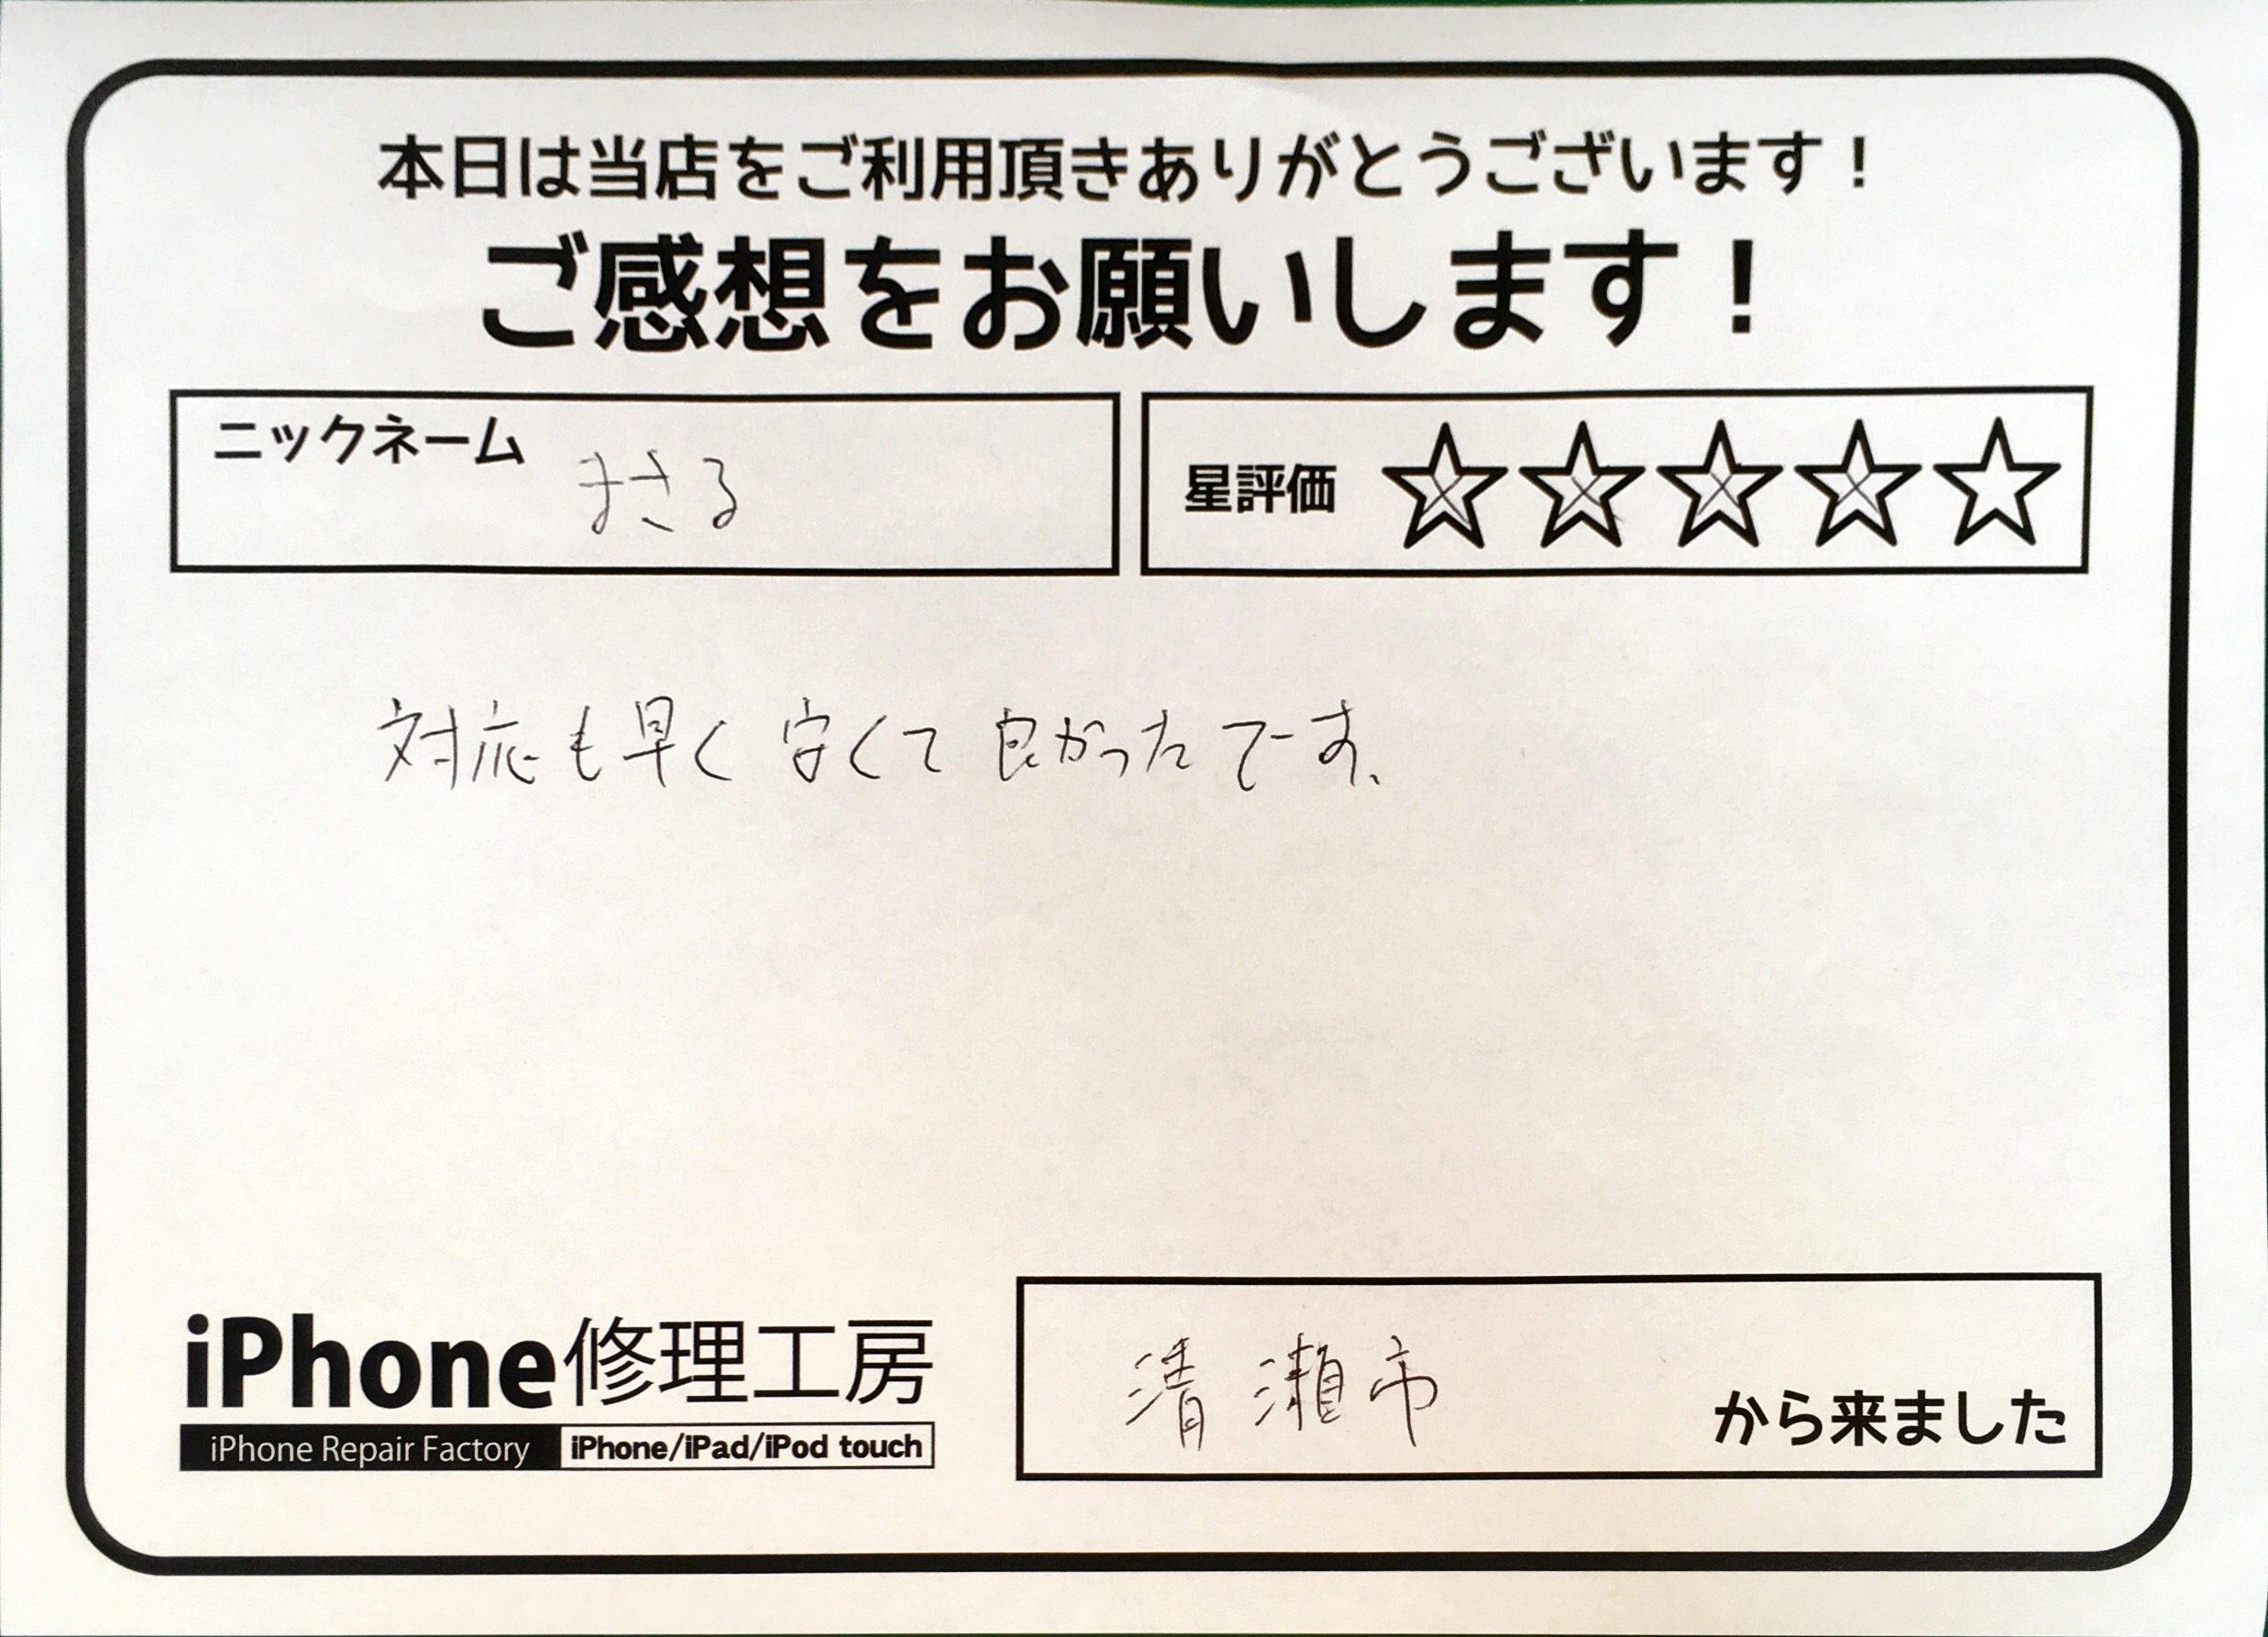 本日は当店をご利用頂きありがとうございます！
ご感想をお願いします！
ニックネーム まさる
星評価 ☆☆☆☆☆
対応も早く安くて良かったです、
iPhone修理工房
iPhone Repair Factory iPhone/iPad/iPod touch
清瀬市 から来ました